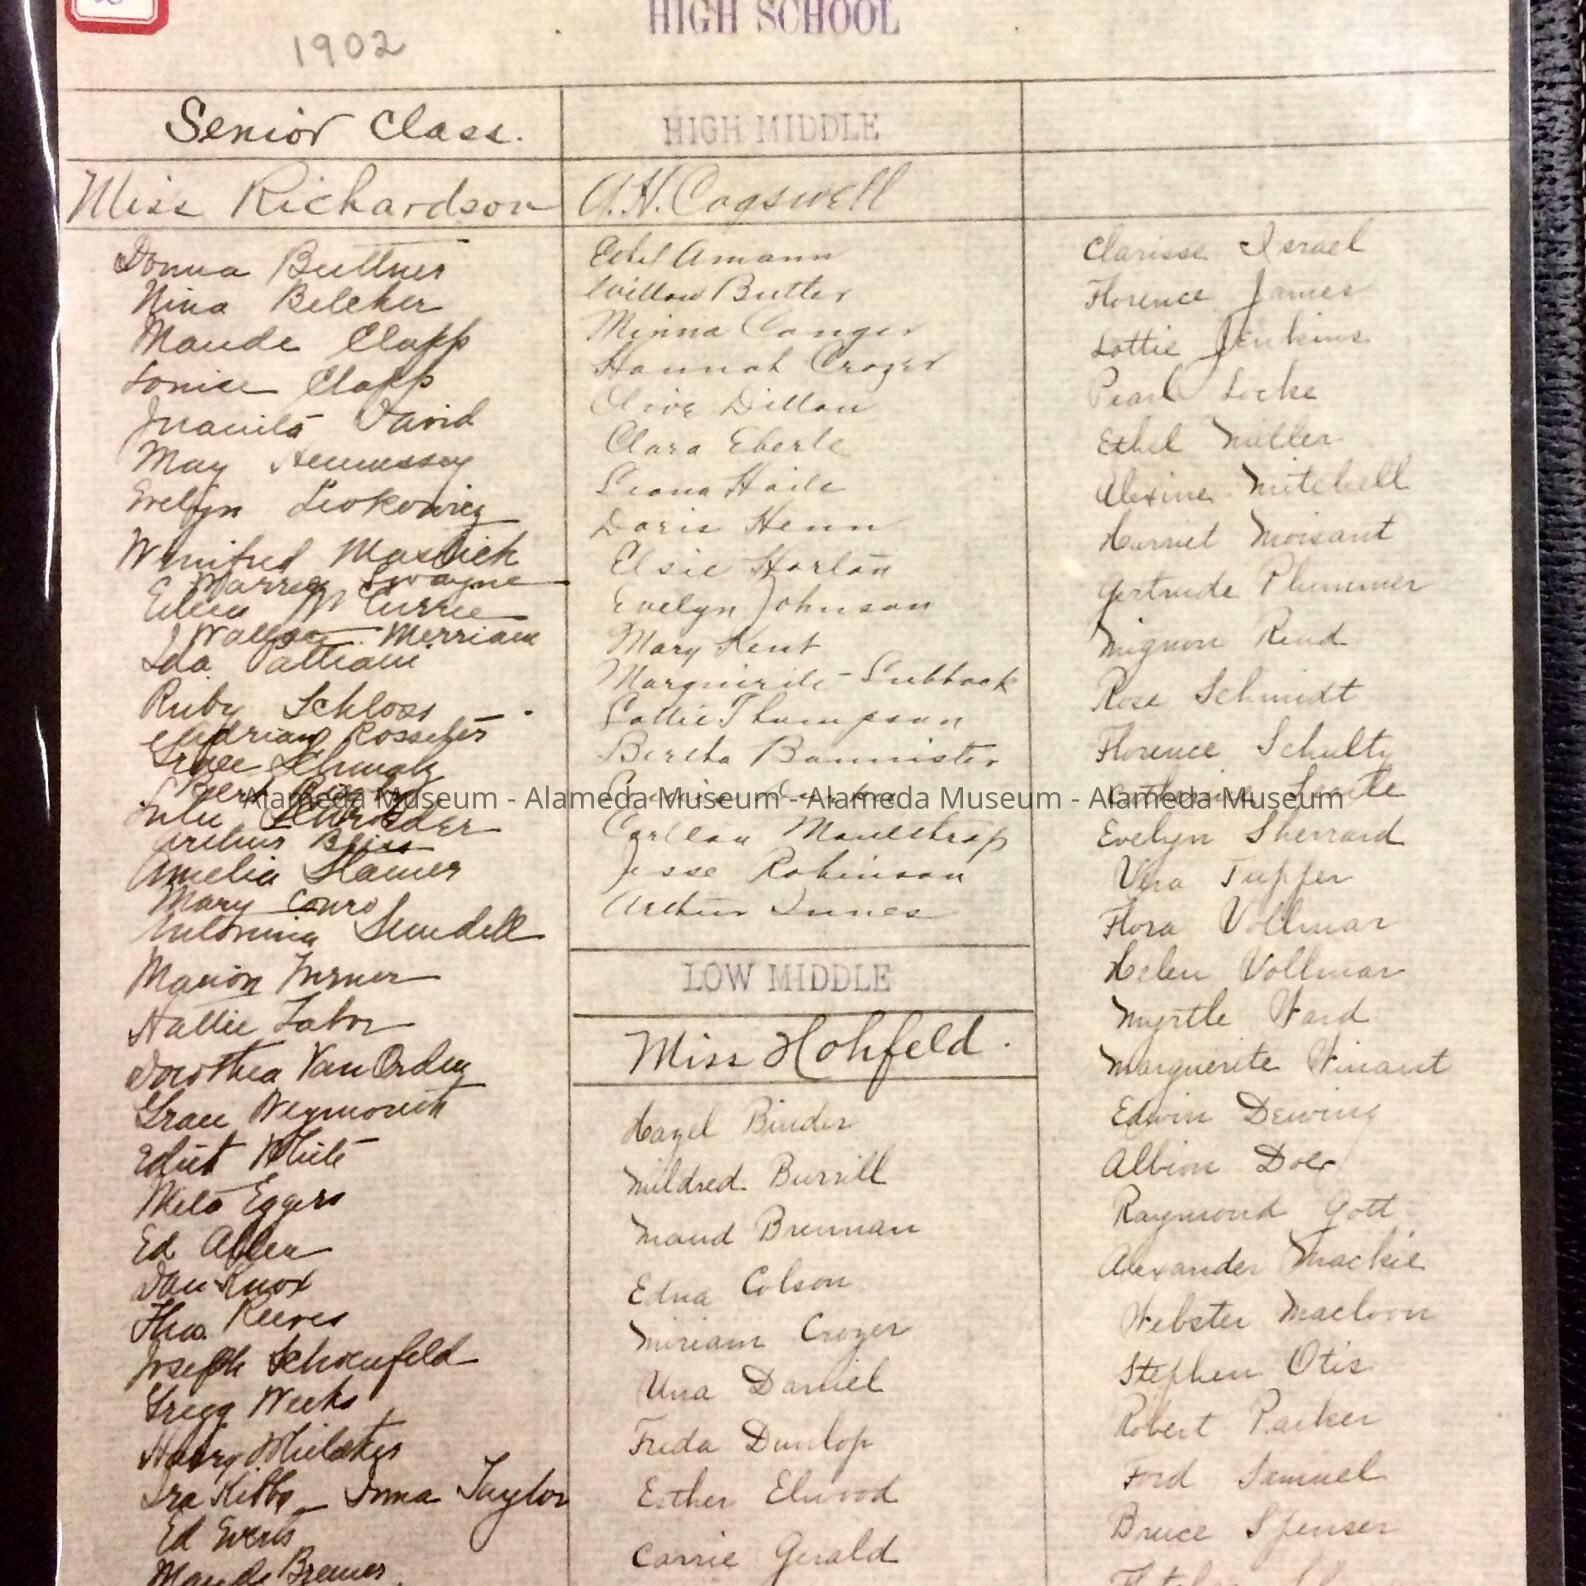 HIGH SCHOOL
1902
Senior Class.
Miss Richardson
Donna Buttner
Nina Belcher
Maude Clapp
Louise Clapp
Juanita David
May Hennessey
Evelyn
Winifred Mastick
Swayne
McCurrie
Merriam
Ida
Ruby Schloss
Rosseter
Schroeder
Bliss
Amelia
Mary
Marion Turner
Hattie Tabor
Dorothea Van Orden
Grace Weymouth
Edith White
Meta Eggers
Ed Allen
Dan Knox
Thos. Reeves
Joseph Schoenfeld
Gregg Weeks
Harry
Ira Kibby - Inma Taylor
Ed Evers
Maude Bremer
HIGH MIDDLE
A.H. Cogswell
Ethel Amann
Willow Butler
Minna Conger
Hannah Crozer
Olive Dillon
Clara Eberle
Leona Haile
Doris Henn
Elsie Horton
Evelyn Johnson
Mary Kent
Lottie Thompson
Bertha Bannister
Carlton Moulthrop
Jesse Robinson
Arthur Innes
LOW MIDDLE
Miss Hohfeld.
Hazel Binder
Mildred Burrill
Maud Brennan
Edna Colson
Miriam Crozer
Una Daniel
Freda Dunlop
Esther Elwood
Carrie Gerald
Clarisse Israel
Florence James
Lottie Jenkins
Pearl Locke
Ethel Miller
Alexine Mitchell
Harriet Moisant
Gertrude Plummer
Mignon Read
Rose Schmidt
Florence Schultz
Evelyn Sherrard
Vera Tupper
Flora Vollmar
Helen Vollmar
Myrtle Ward
Marguerite Winant
Edwin Dewing
Albion Doe
Raymond Gott
Alexander Mackie
Webster Macloon
Stephen Otis
Robert Parker
Ford Samuel
Bruce Spenser
Alameda Museum - Alameda Museum - Alameda Museum - Alameda Museum